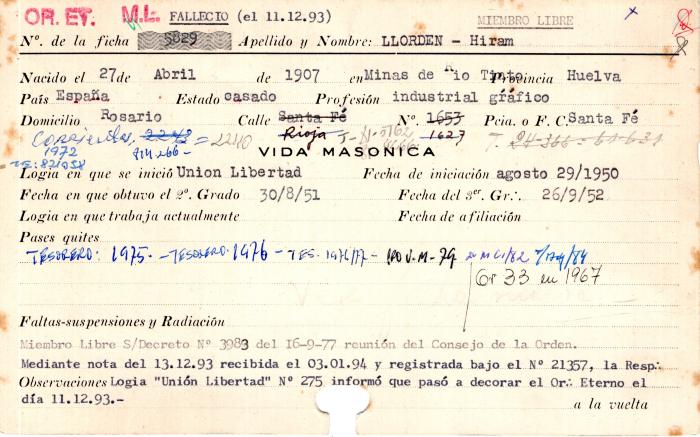 OR. ET. M.L. FALLECIO (el 11.12.93) MIEMBRO LIBRE
Nº. de la ficha 5829 Apellido y Nombre: LLORDEN - Hiram
Nacido el 27 de Abril de 1907 en Minas de Rio Tinto Provincia Huelva
País España Estado casado Profesión industrial gráfico
Domicilio Rosario Calle Santa Fé Nº. 1653 Pcia. o F. C. Santa Fé
Corrientes 2242 = 2240 Rioja 1627
1972
VIDA MASONICA
Logia en que se inició Union Libertad Fecha de iniciación agosto 29/1950
Fecha en que obtuvo el 2º. Grado 30/8/51 Fecha del 3er. Gr.: 26/9/52
Logia en que trabaja actualmente Fecha de afiliación
Pases quites
TESORERO: 1975.- - TESORERO. 1976 - TES. 1976/77 - V. M. - 79
Gr 33 en 1967
Faltas-suspensiones y Radiación
Miembro Libre S/Decreto Nº 3983 del 16-9-77 reunión del Consejo de la Orden.
Mediante nota del 13.12.93 recibida el 03.01.94 y registrada bajo el Nº 21357, la Resp∴
Observaciones Logia "Unión Libertad" Nº 275 informó que pasó a decorar el Or∴ Eterno el
día 11.12.93.-
a la vuelta